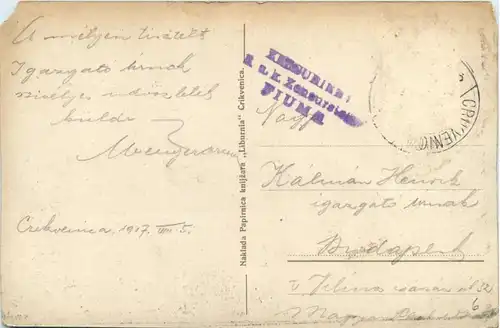 A mélyen tisztelt
Igazgató úrnak
szívélyes üdvözletet
küldi
Crikvenica, 1917. VIII. 5.
Naklada Papirnica knjižara „Liburnia“ Crikvenica.
ZENSURIERT
K.u.k. Zensurstelle
FIUME
CRIKVENICA
Nagys.
Kálmán Henrik
igazgató úrnak
Budapest
V Vilmos császár út 32